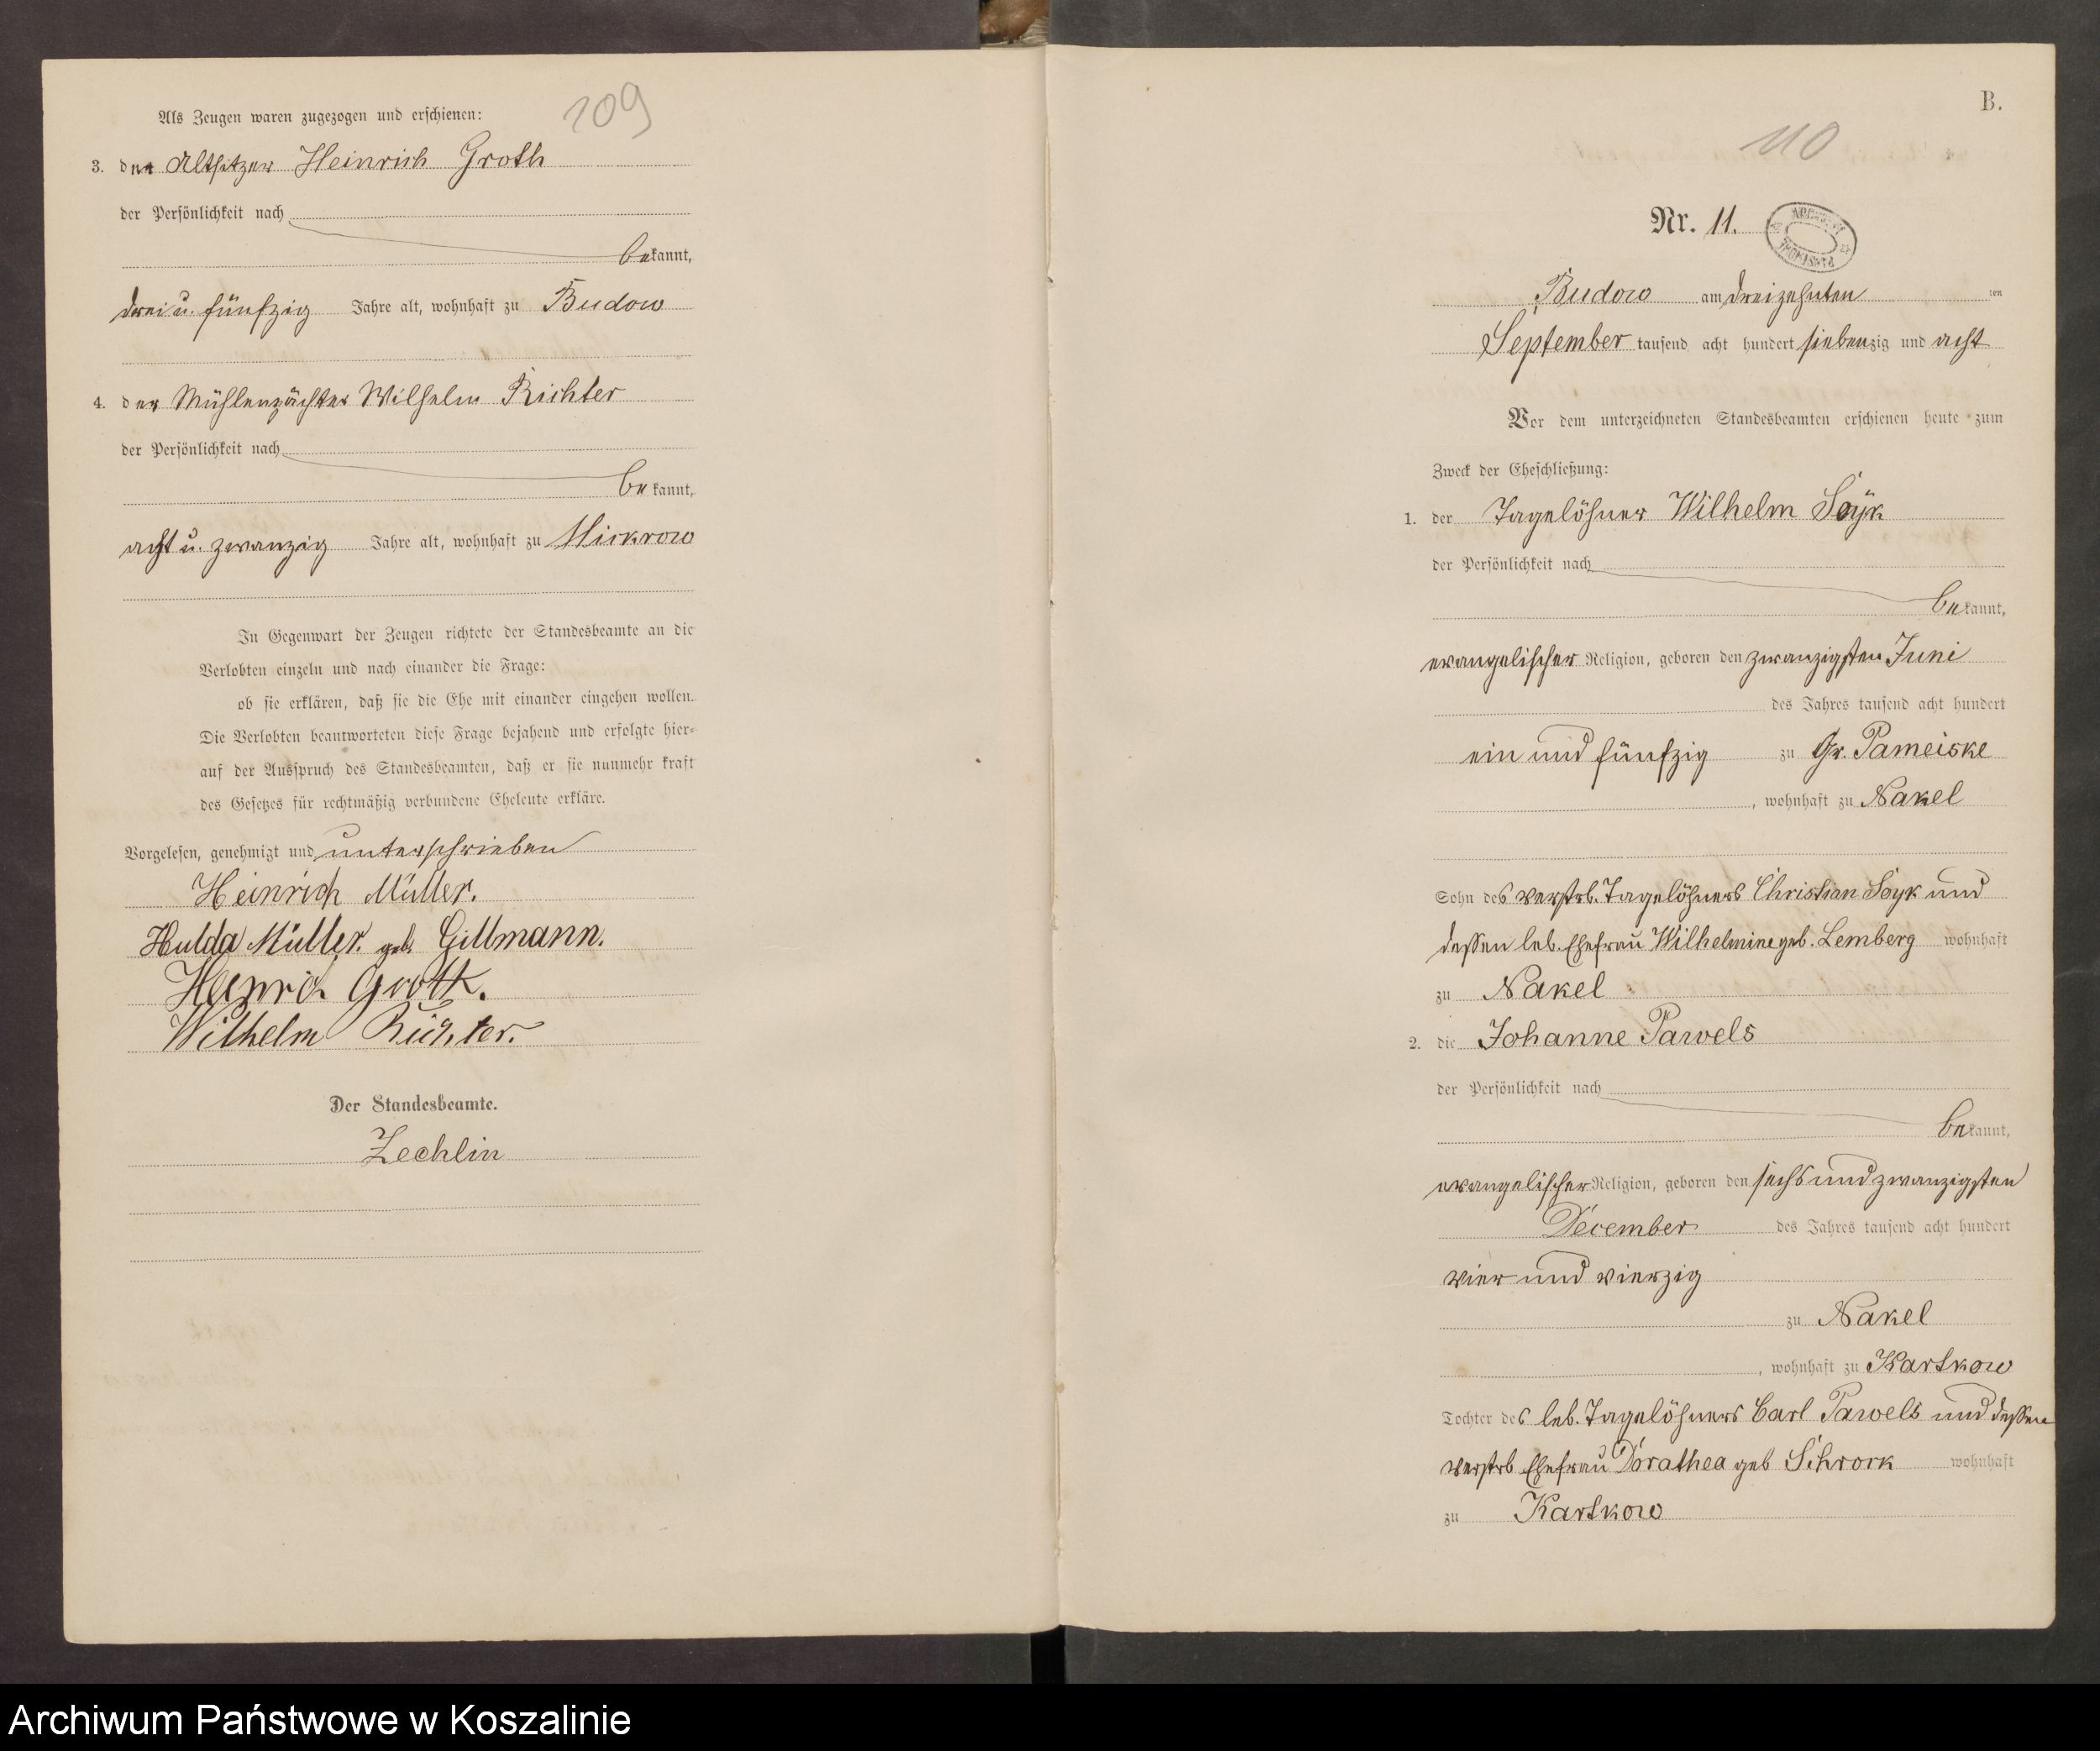 109
Als Zeugen waren zugezogen und erschienen:
3. der Altsitzer Heinrich Groth
der Persönlichkeit nach
bekannt,
drei u. fünfzig Jahre alt, wohnhaft zu Budow
4. der Mühlenpächter Wilhelm Richter
der Persönlichkeit nach
bekannt,
acht u. zwanzig Jahre alt, wohnhaft zu Mickrow
In Gegenwart der Zeugen richtete der Standesbeamte an die
Verlobten einzeln und nach einander die Frage:
ob sie erklären, daß sie die Ehe mit einander eingehen wollen.
Die Verlobten beantworteten diese Frage bejahend und erfolgte hier-
auf der Ausspruch des Standesbeamten, daß er sie nunmehr kraft
des Gesetzes für rechtmäßig verbundene Eheleute erkläre.
Vorgelesen, genehmigt und unterschrieben
Heinrich Müller.
Hulda Müller. geb. Gillmann.
Heinrich Groth.
Wilhelm Richter.
Der Standesbeamte.
Zechlin
B.
110
Nr. 11.
Budow am dreizehnten ten
September tausend acht hundert siebenzig und acht
Vor dem unterzeichneten Standesbeamten erschienen heute zum
Zweck der Eheschließung:
1. der Tagelöhner Wilhelm Soyk
der Persönlichkeit nach
bekannt,
evangelischer Religion, geboren den zwanzigsten Juni
des Jahres tausend acht hundert
ein und fünfzig zu Gr. Pomeiske
, wohnhaft zu Nakel
Sohn des verstrb. Tagelöhners Christian Soyk und
dessen leb. Ehefrau Wilhelmine geb. Lemberg wohnhaft
zu Nakel
2. die Johanne Pawels
der Persönlichkeit nach
bekannt,
evangelischer Religion, geboren den sechs und zwanzigsten
December des Jahres tausend acht hundert
vier und vierzig
zu Nakel
, wohnhaft zu Kartkow
Tochter des leb. Tagelöhners Carl Pawels und dessen
verstrb Ehefrau Dorathea geb Schrock wohnhaft
zu Kartkow
Archiwum Państwowe w Koszalinie